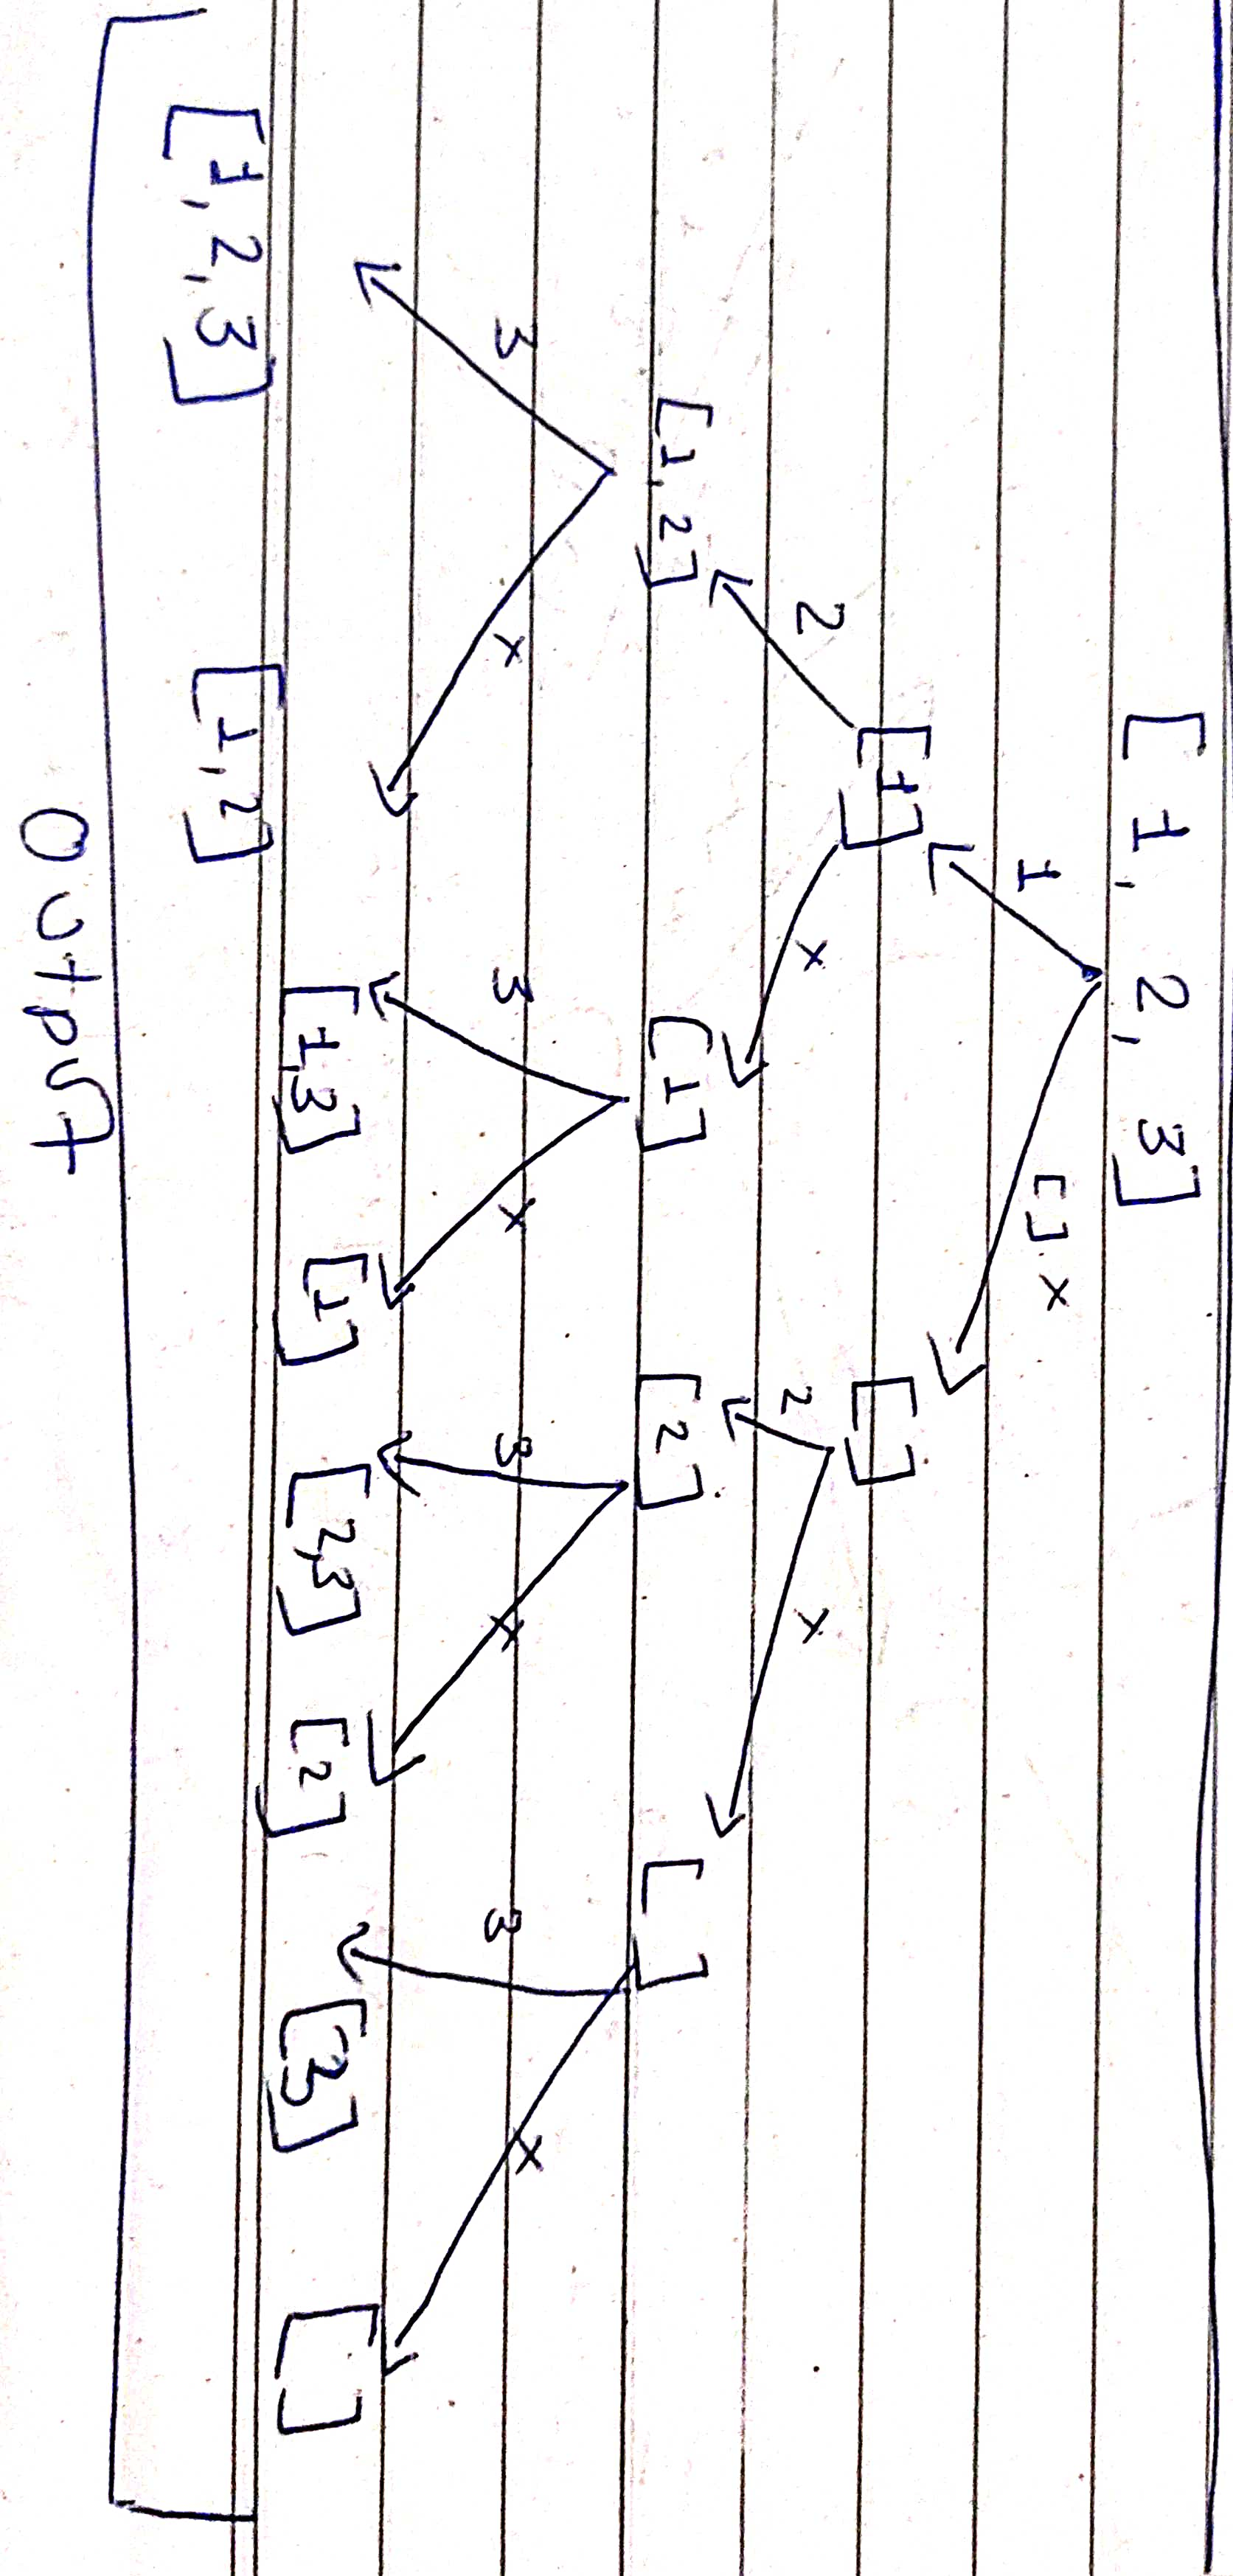 [1, 2, 3]
1 [] x
[1] [ ]
2 x 2 x
[1, 2] [1] [2] [ ]
3 x 3 x 3 x 3 x
[1, 2, 3] [1, 2] [1,3] [1] [2,3] [2] [3] [ ]
Output